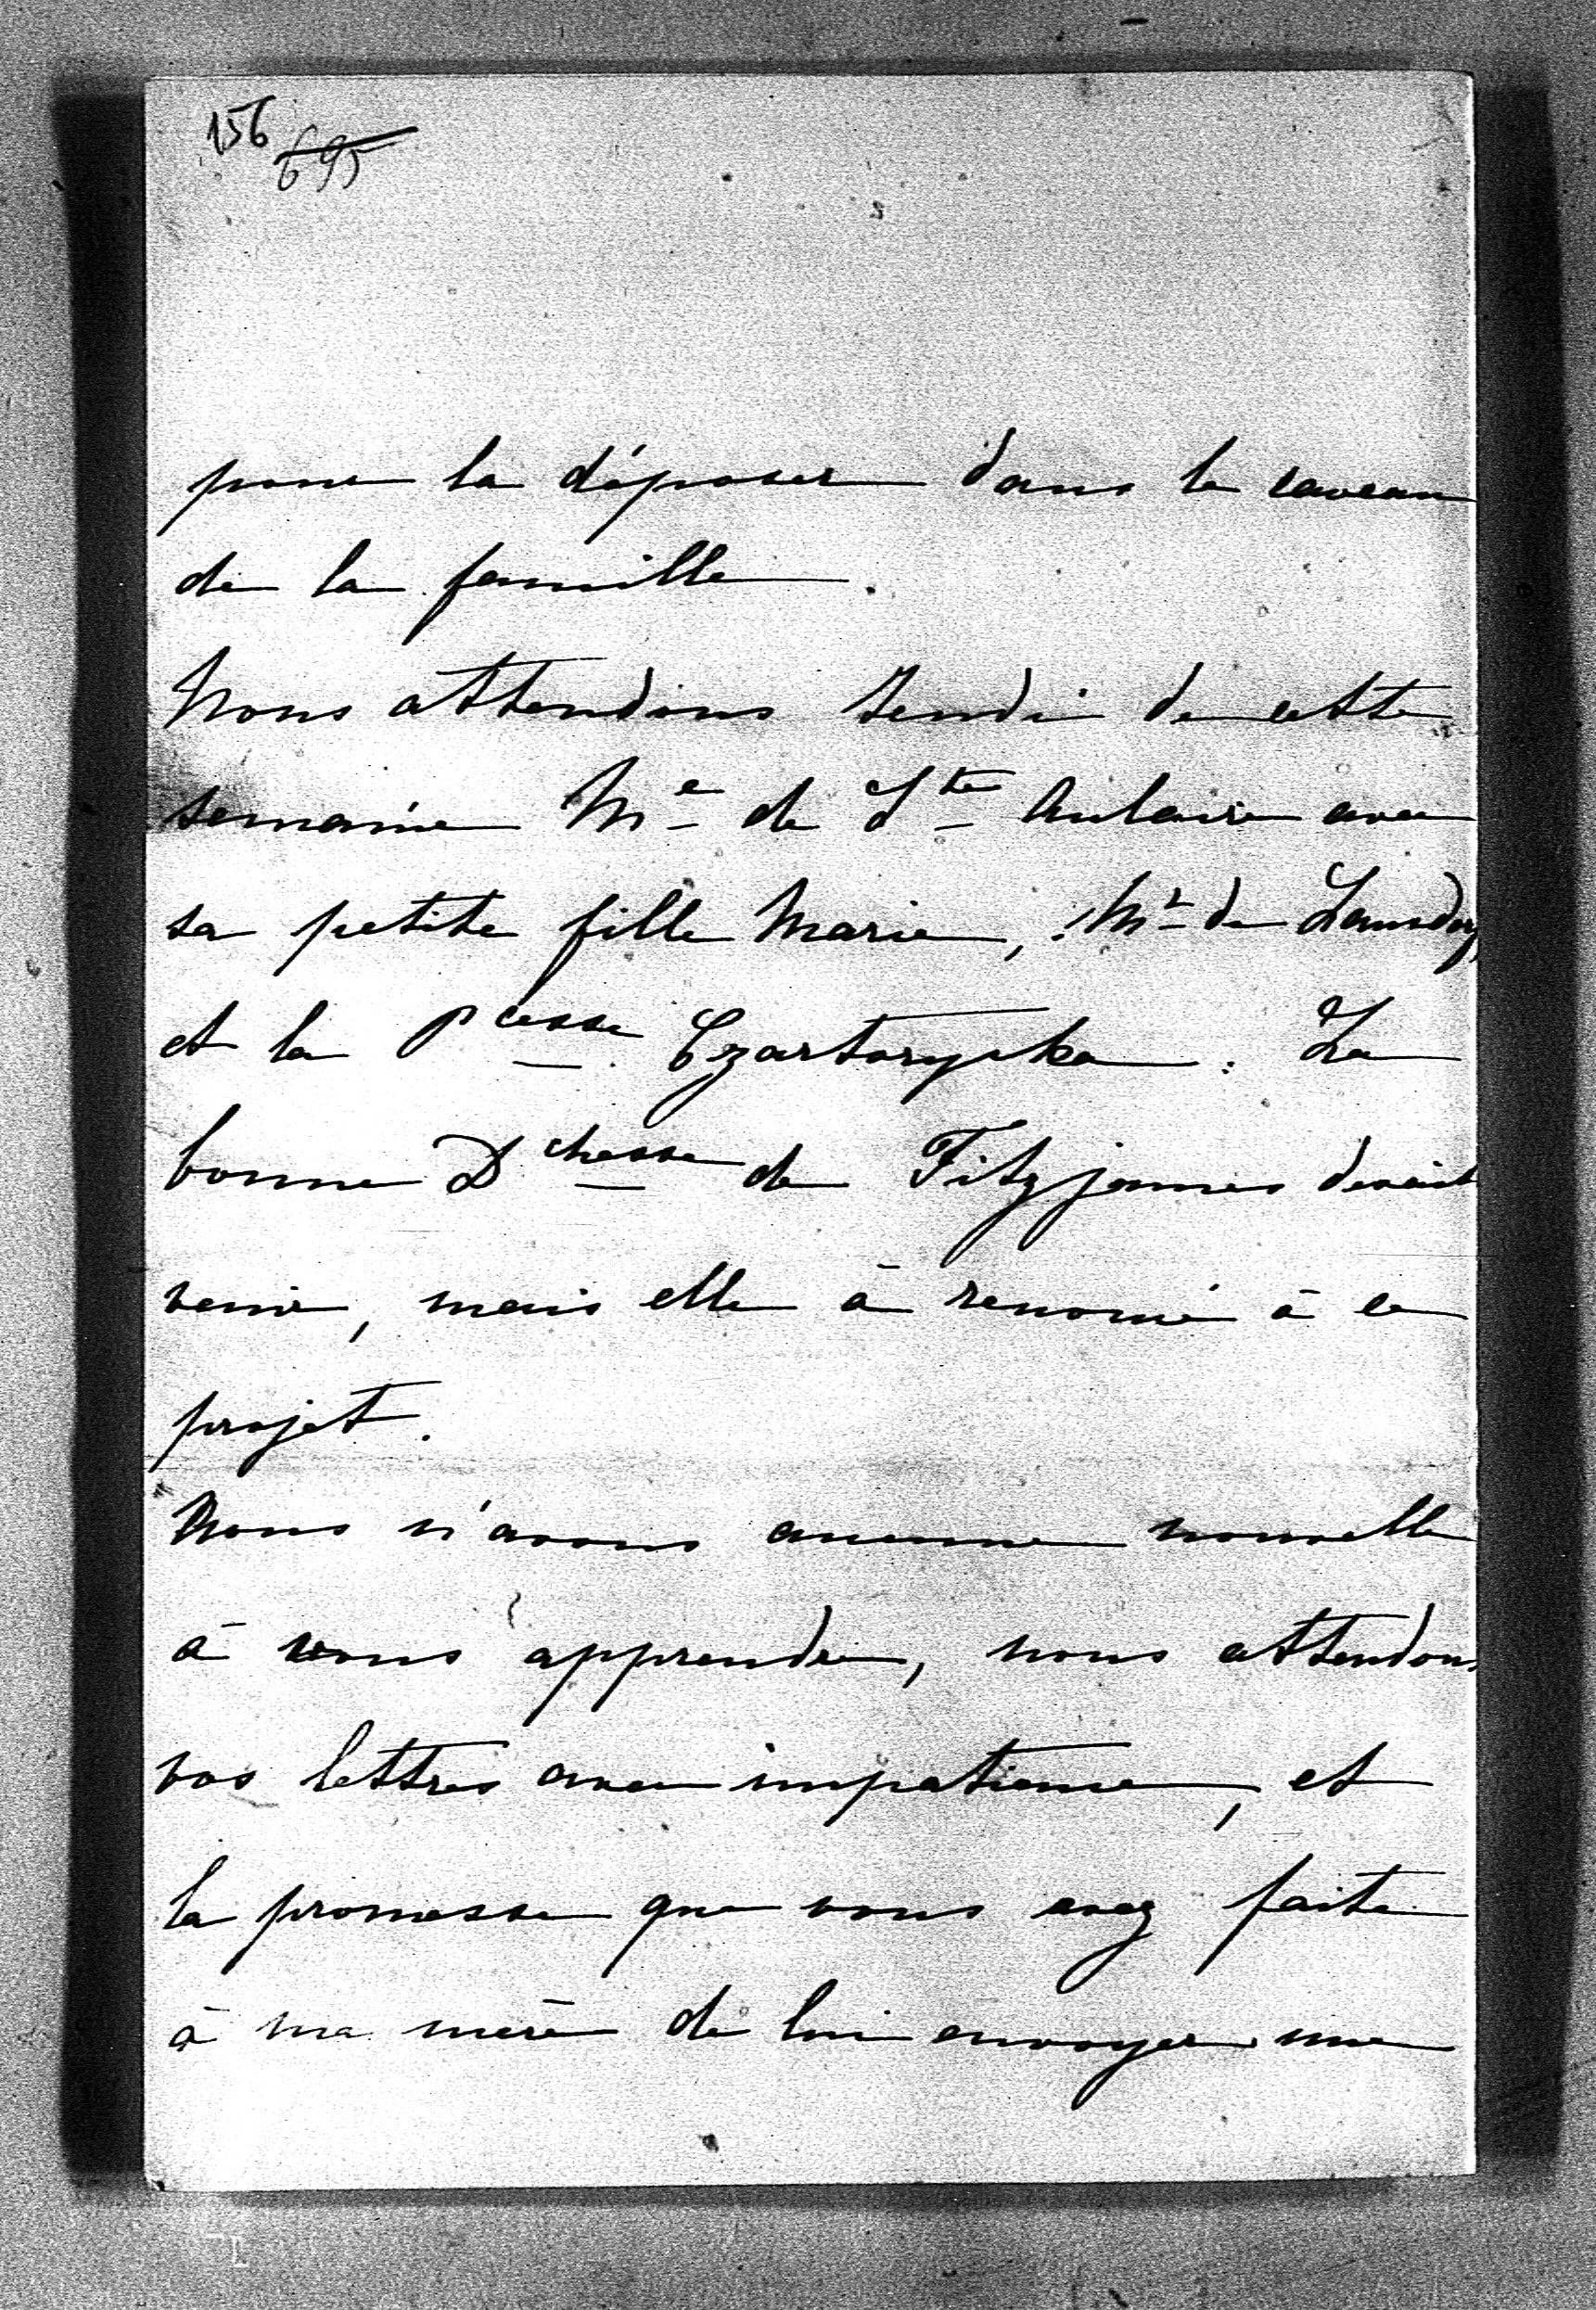 156
695
pour la déposer dans le caveau
de la famille.
Nous attendons Jeudi de cette
semaine Me de Ste Aulaire avec
sa petite fille Marie, Mr de
et la Pcesse Czartoryska. La
bonne Dchesse de Fitzjames devait
venir, mais elle à renoncé à ce
projet.
Nous n'avons aucune nouvelle
à vous apprendre, nous attendons
vos lettres avec impatience, et
la promesse que vous avez faite
à ma mère de lui envoyer une